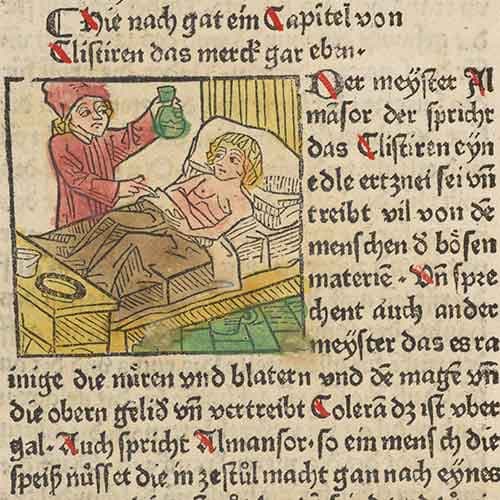 Hie nach gat ein Capitel von
Clistiren das merck gar eben.
Der meyster Al
mãsor der spricht
das Clistiren eyn
edle ertznei sei vñ
treibt vil von dẽ
menschen d̕ bösen
materiẽ. Vñ spre
chent auch ander
meyster das es ra
inige die nüren vnd blatern vnd dẽ magẽ vñ
die obern gelid vñ vertreibt Colerã dz ist vber
gal. Auch spricht Almansor. so ein mensch die
speiß nüsset die in zestůl macht gan nach eynes